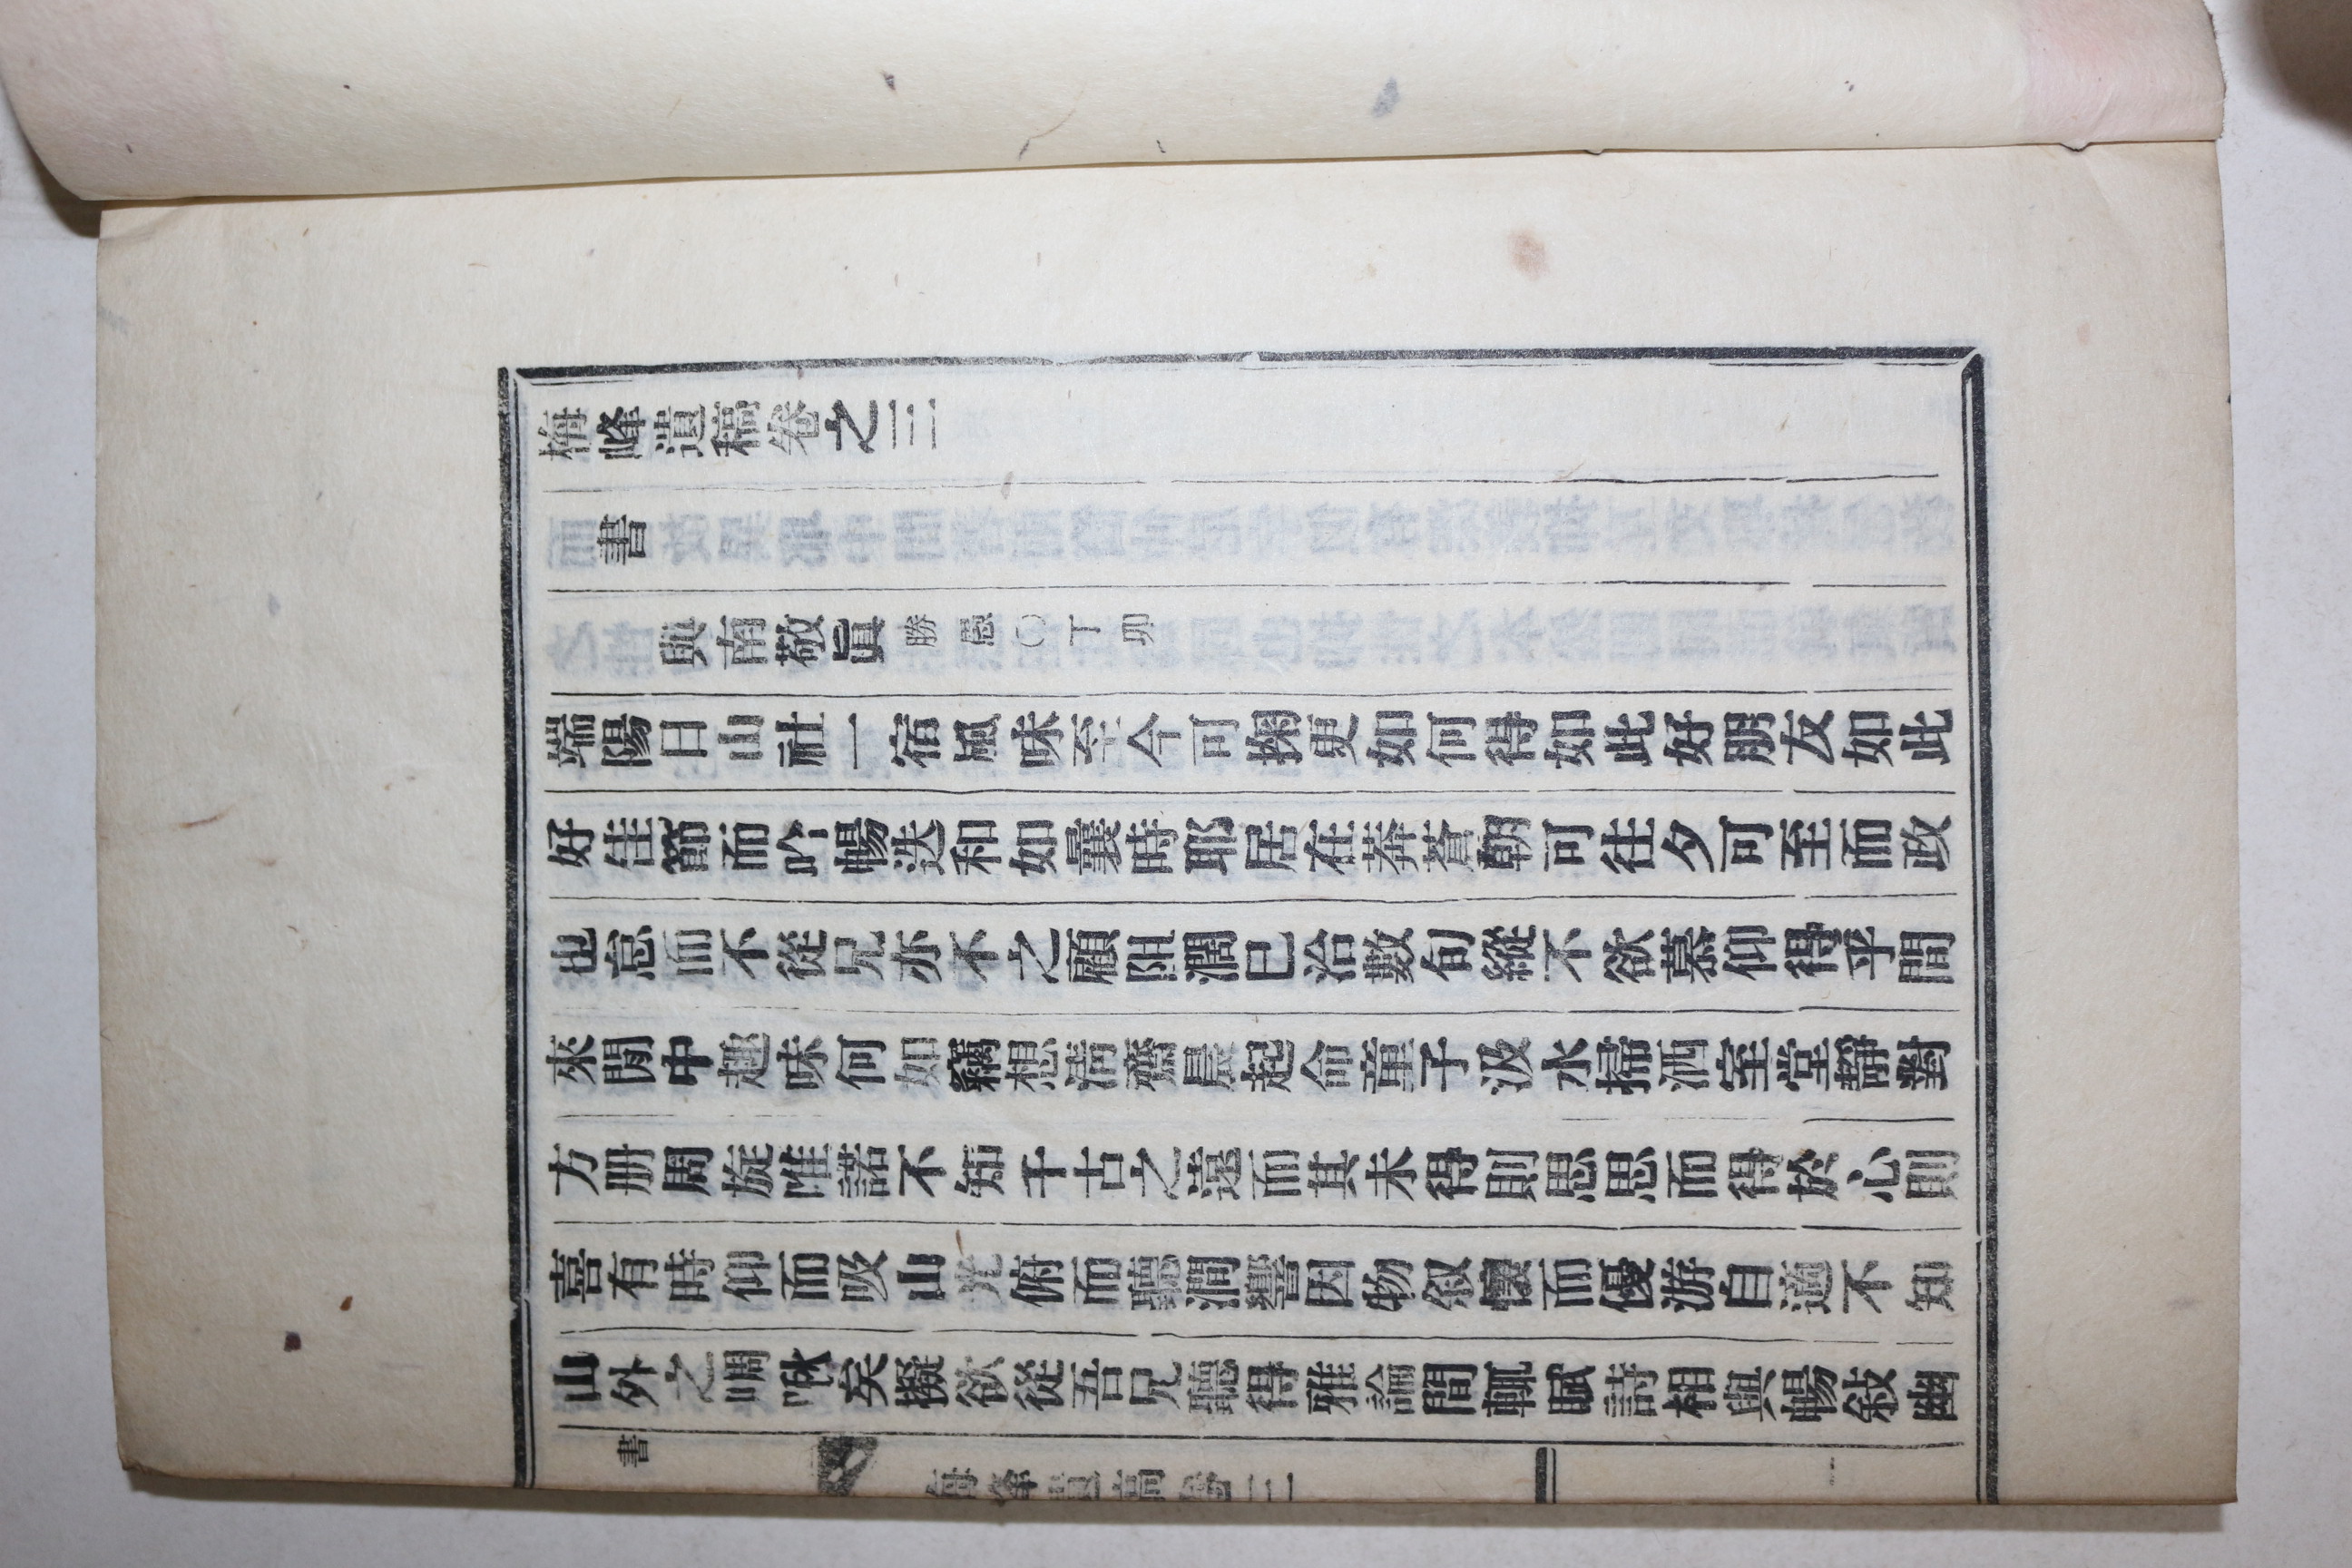 梅峰遺稿卷之三
書
與南敬眞勝愚○丁卯
端陽日山社一宿風味至今可掬更如何得如此好朋友如此
好佳節而吟暢迭和如曩時耶居在莽蒼朝可往夕可至而政
也怠而不從兄亦不之顧阻濶已洽數旬縱不欲慕仰得乎間
來閒中趣味何如竊想淸齋晨起命童子汲水掃洒室堂靜對
方册周旋唯諾不知千古之遠而其未得則思思而得於心則
喜有時仰而吸山光俯而聽澗響因物叙懷而優游自適不知
山外之啁啾矣擬欲從吾兄聽得雅論間輒賦詩相與暢敍幽
書
梅峰遺稿卷三
一